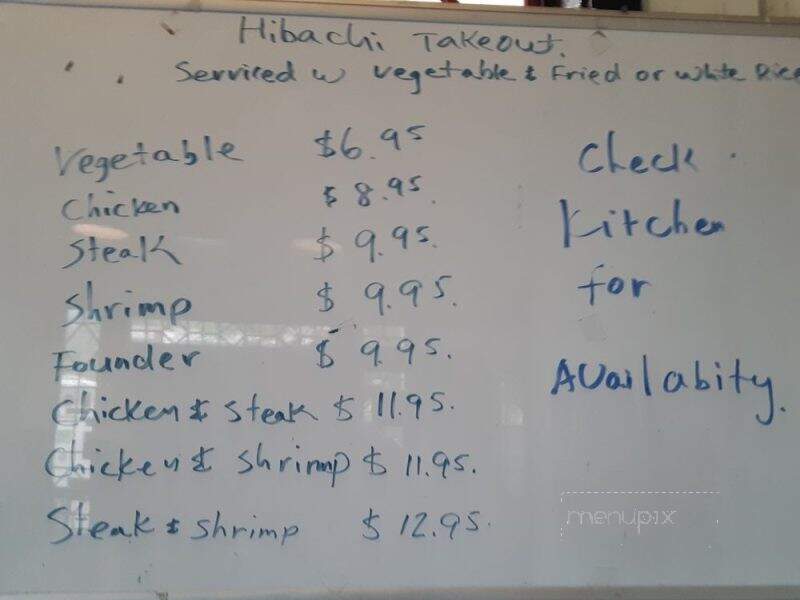 Hibachi Takeout.
Serviced w vegetable & Fried or white Rice
Vegetable $6.95
Chicken $8.95.
Steak $9.95.
Shrimp $9.95.
Founder $9.95.
Chicken & Steak $11.95.
Chicken & Shrimp $11.95.
Steak & Shrimp $12.95.
Check
Kitchen
for
Availabity.
menupix